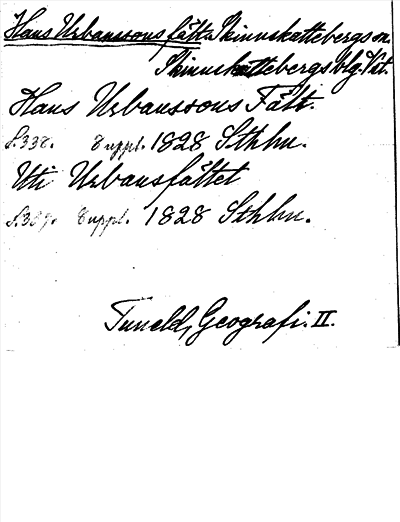 Hans Urbanssons fält. Skinnskattebergs sn.
Skinnskattebergs blg. Vst.
Hans Urbanssons Fält.
S.338. 8 uppl. 1828 Sthlm.
Uti Urbansfältet
8 uppl. 1828 Sthlm.
Tuneld, Geografi. II.